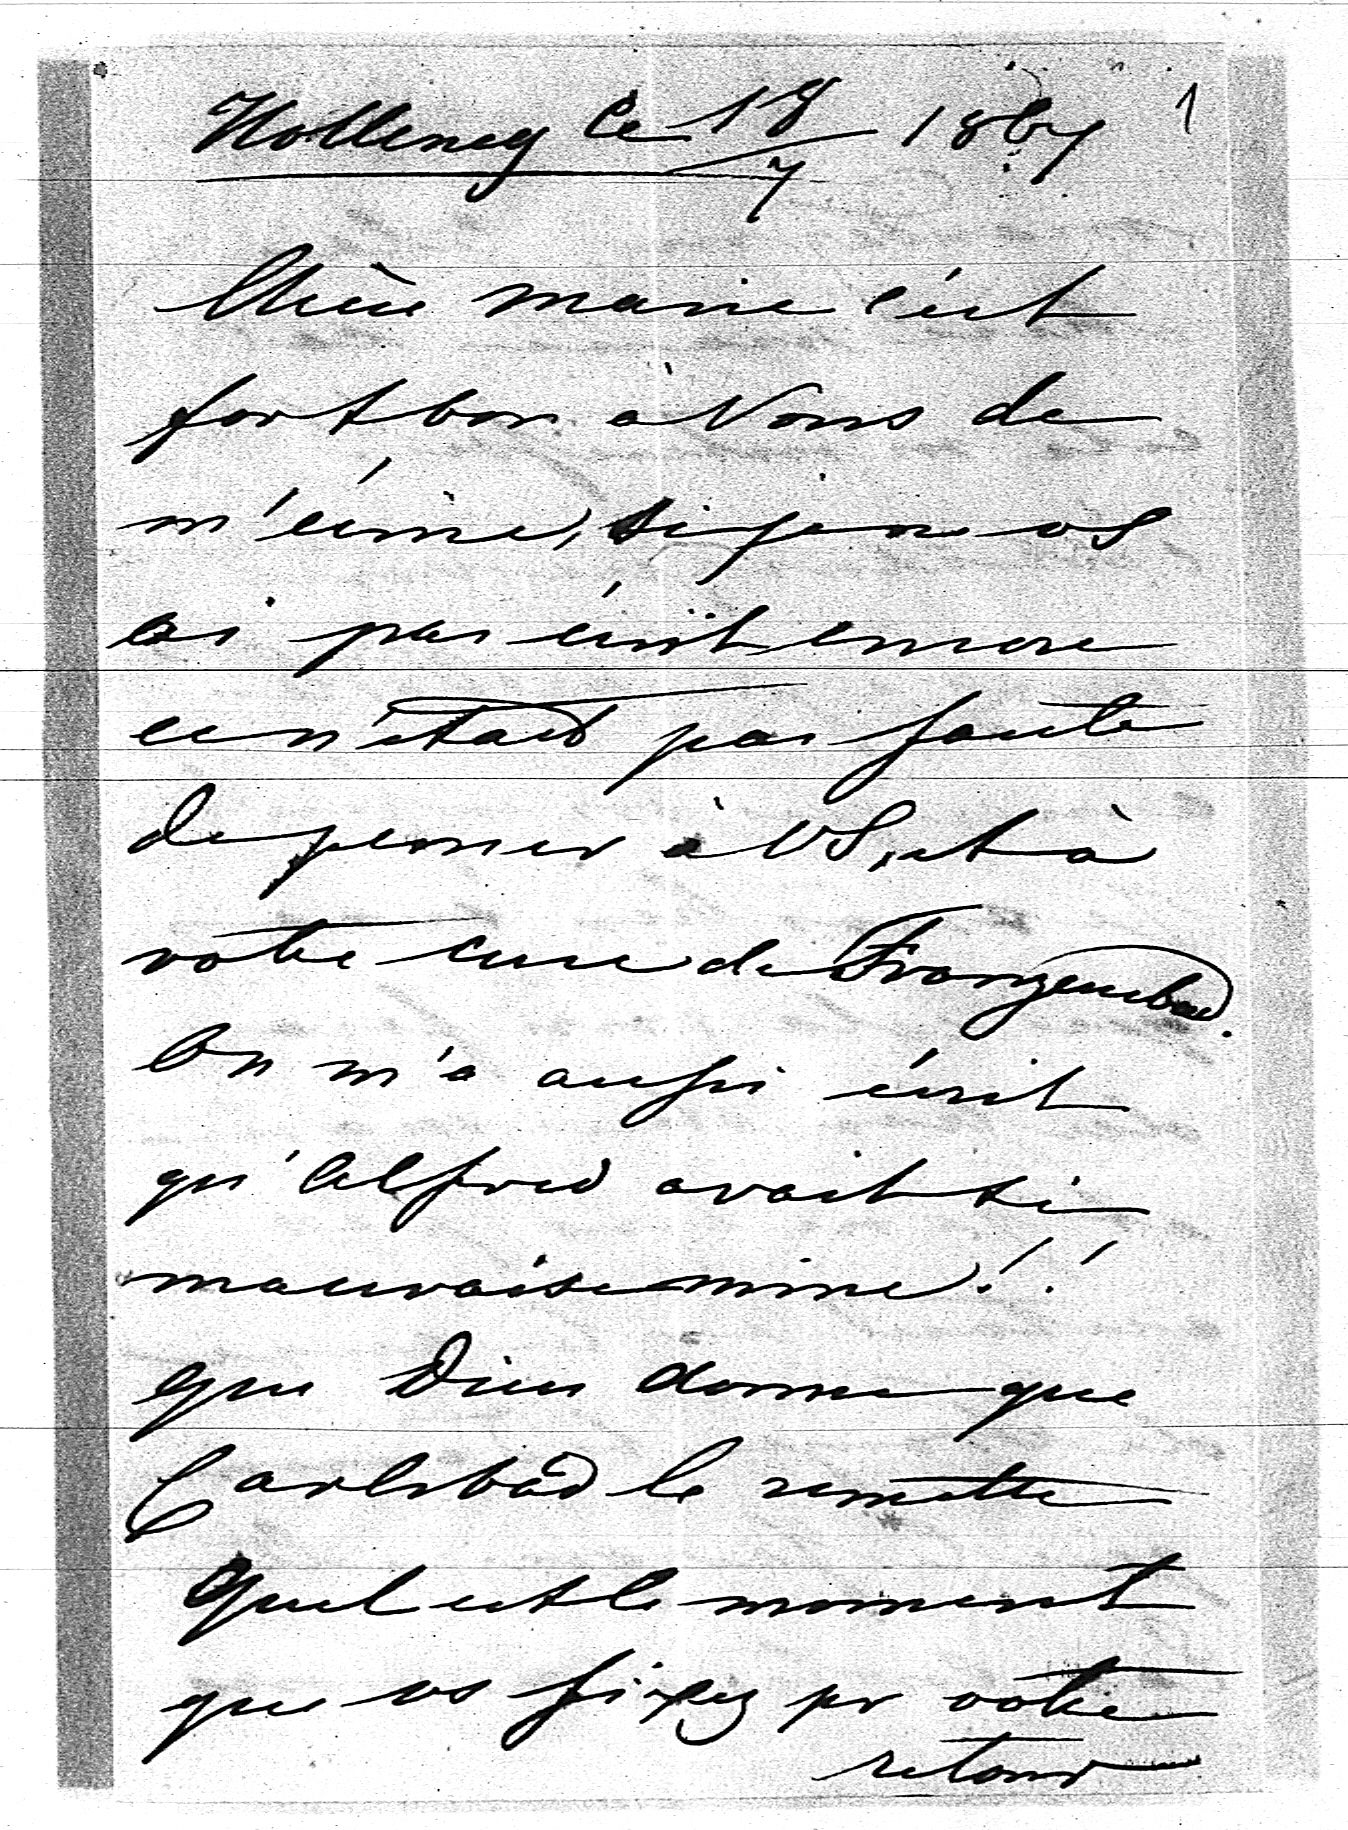 Hollenegg le 18/7 1867 1
Chère Marie c'est
fort bon à Vous de
m'écrire, si je ne vs
ai pas écrit encore
ce n'était pas faute
de penser à VS, et à
votre cure de Franzensbad.
On m'a aussi écrit
qu'Alfred avait si
mauvaise mine!!
que Dieu donne que
Carlsbad le remette
Quel est le moment
que vs fixez pr votre
retour